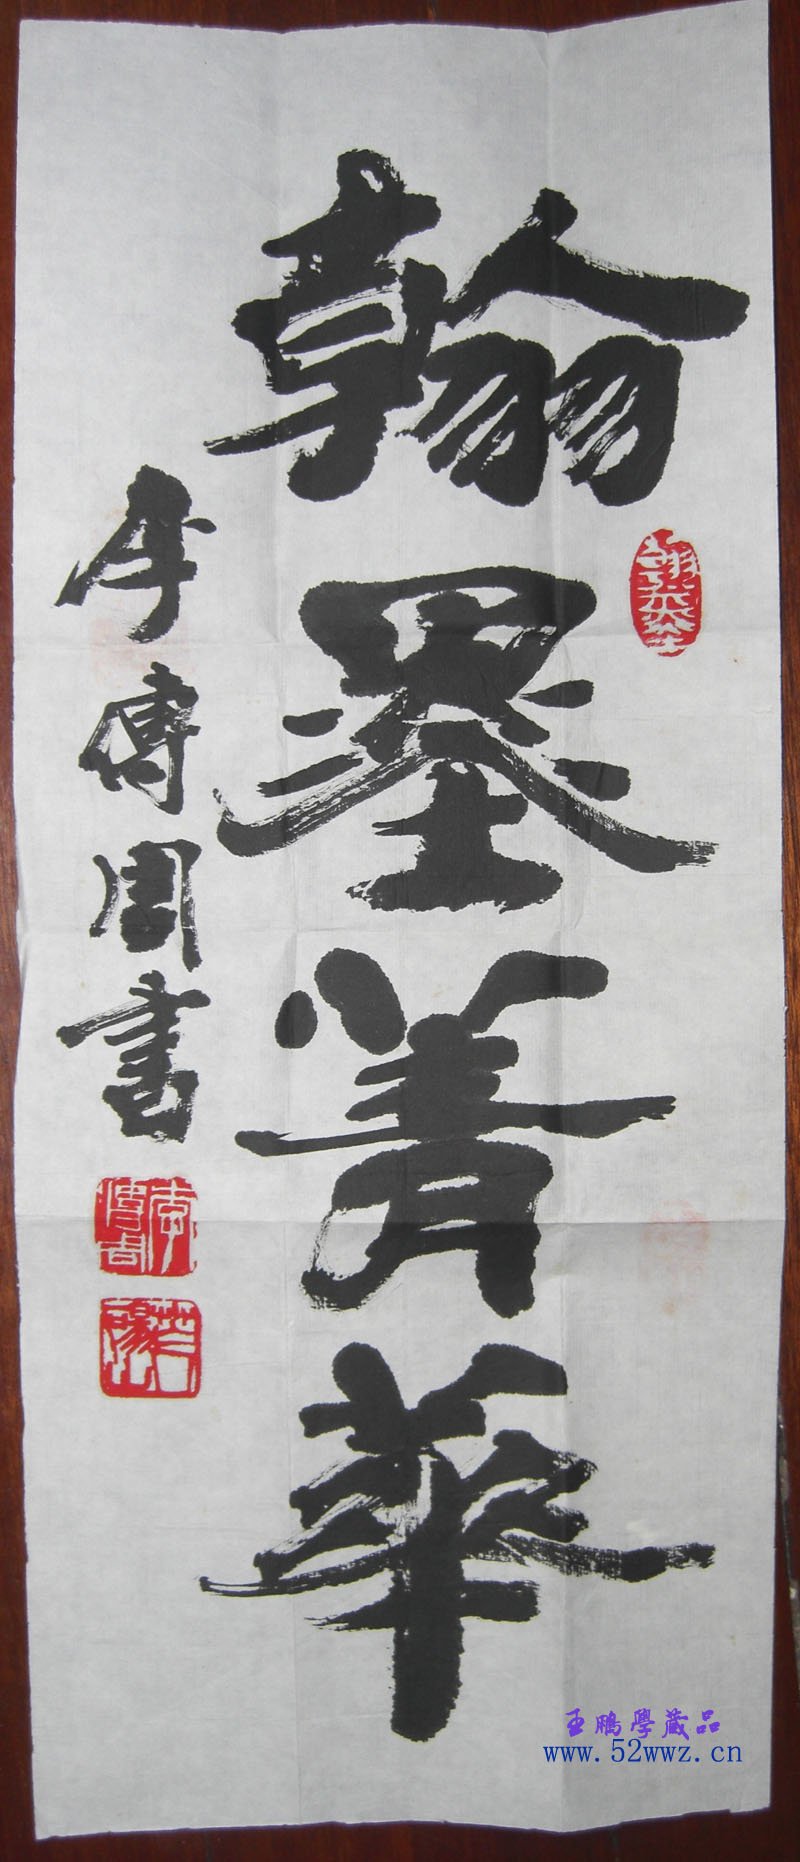 翰墨菁華
李傳周書
李傳周
王鵬學藏品
www.52wwz.cn